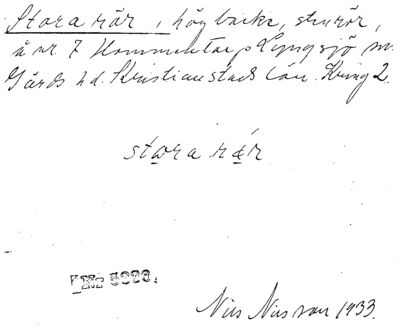 Stora rör, hög backe, stenrör,
å nr 7 Kommentarp Lyngsjö sn.
Gärds hd. Kristianstads län. Kring 2.
stora rǽr
Nils Nilsson 1933.